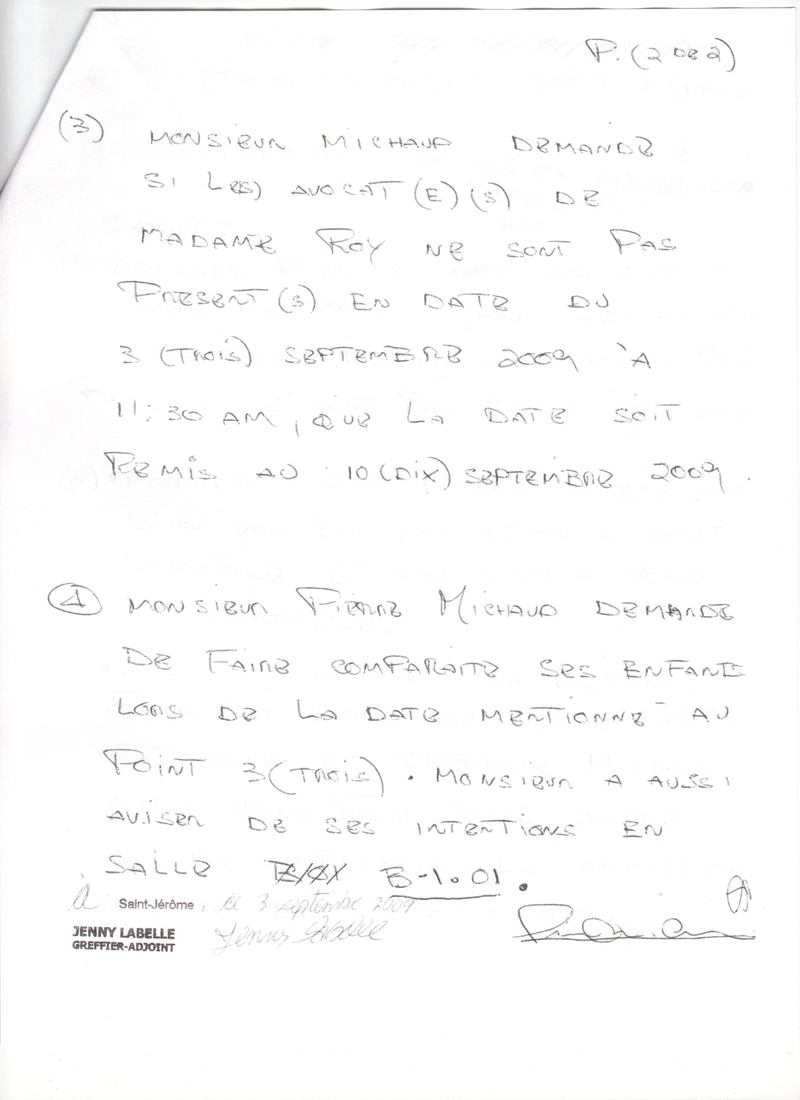 P. (2 DE 2)
(3) MONSIEUR MICHAUD DEMANDE
SI LE(S) AVOCAT(E)(S) DE
MADAME ROY NE SONT PAS
PRESENT(S) EN DATE DU
3 (TROIS) SEPTEMBRE 2009 À
11:30 AM, QUE LA DATE SOIT
REMIS AU 10 (DIX) SEPTEMBRE 2009.
4 MONSIEUR PIERRE MICHAUD DEMANDE
DE FAIRE COMPARAITE SES ENFANTS
LORS DE LA DATE MENTIONNÉ AU
POINT 3 (TROIS). MONSIEUR A AUSSI
AVISER DE SES INTENTIONS EN
SALLE B-1.01.
à Saint-Jérôme, ce 3 septembre 2009
JENNY LABELLE
GREFFIER-ADJOINT
Jenny Labelle